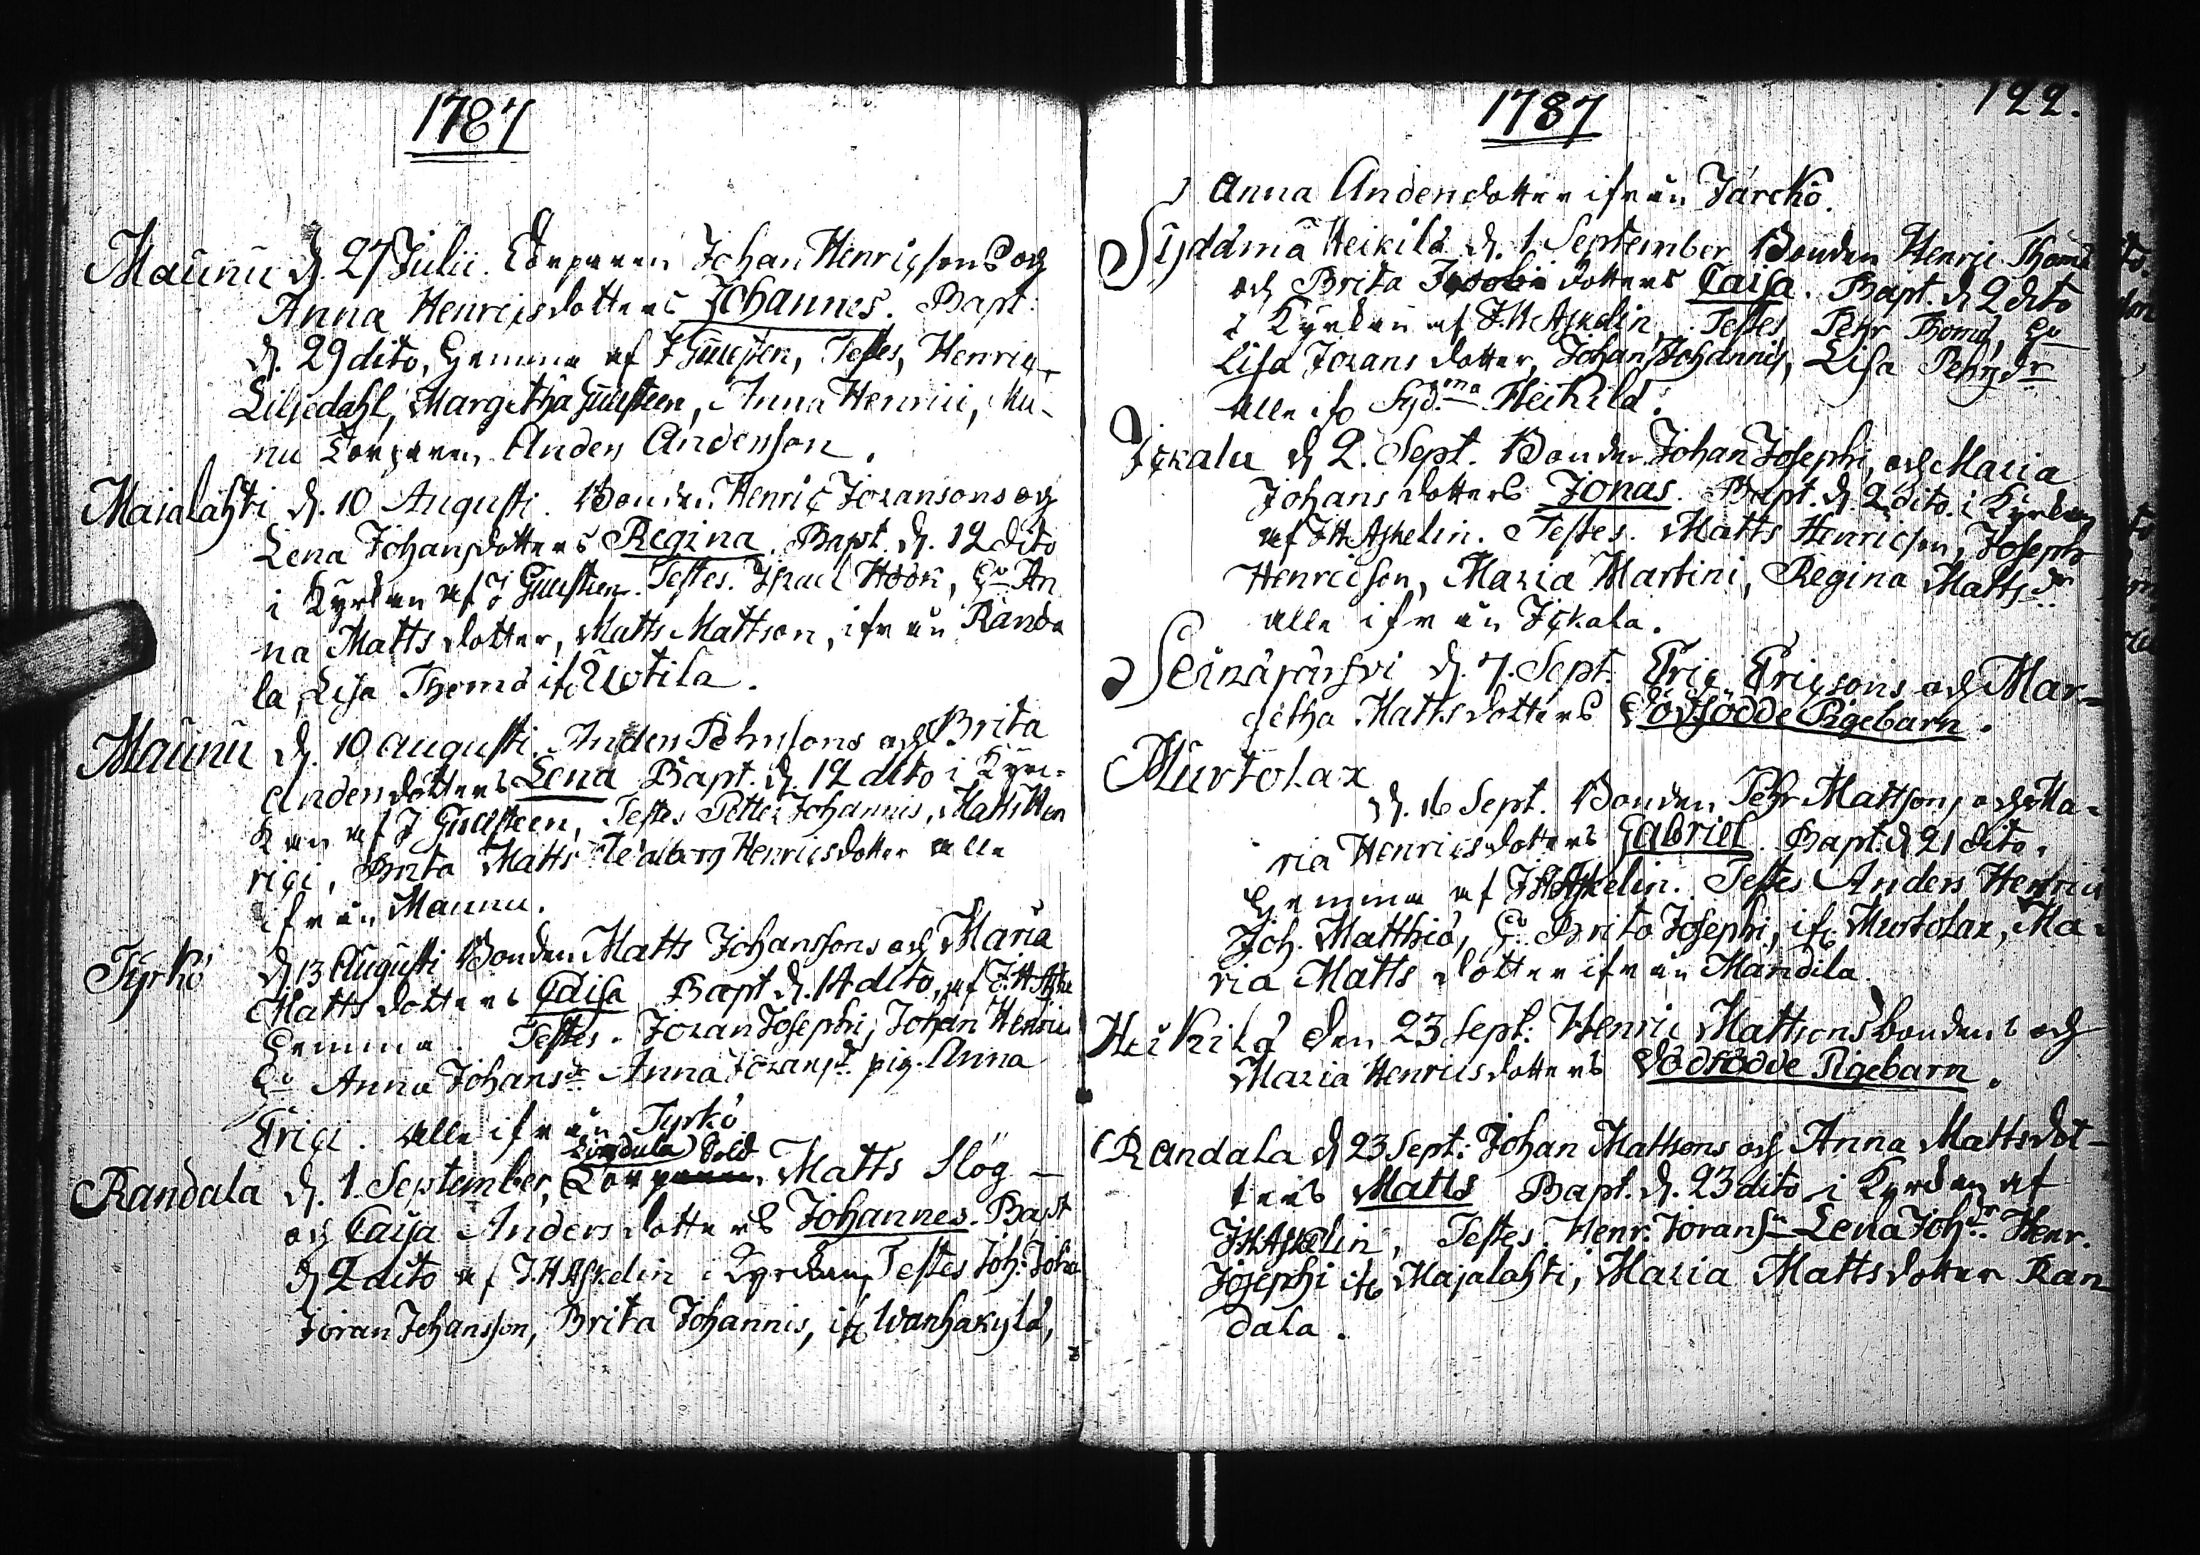 1787
Maunu d. 27 Julii. Torparen Johan Henricsons och
Anna Henricsdotters Johannes. Bapt.
d. 29 dito, hemma af J Gummsten, Testes, Henric
Liljedahl, Margetha Anna Henrici, Mu-
nu Torparen Anders Anderson.
Maialahti d. 10 Augusti. Bonden Henric Joransons och
Lena Johansdotters Regina. Bapt. d. 12 dito
i Kyrkan af J Testes. Israel Höök, Hu An
na Matts dotter, Matts Mattson, ifrån Randa
la, Lisa Thomæ if. Uotila.
Maunu d. 10 augusti. Anders Pehrsons och Brita
Andersdotters Lena Bapt. d. 12 dito i Kyr-
kan af J Testes Petter Johannis, Matts Hen
rici, Brita Matts Walborg Henricsdotter alle
ifrån Maunu.
Tyrkö d. 13 Augusti Bonden Matts Johanssons och Maria
Matts dotters Caisa Bapt d. 14 dito, af J. H Aske
hemma. Testes. Joran Josephi, Johan Henrici
Hu Anna Johansdr Anna Joransdr pig. Anna
Erici. alle ifrån Tyrkö
Randala Sold
Randala d. 1 September, Torparen Matts Slög -
och Caisa Anders dotters Johannes. Bapt
d 2 dito af J. H Askelin i Kyrkan, Testes Joh: Joha
Joran Johansson, Brita Johannis, if. Wanhakylä,
1787
122.
Anna Andersdotter ifrån Järckö.
Sydämä Heikilä d. 1 September Bonden Henric Thomæ
och Brita dotters Caisa. Bapt. d 2 dito
i Kyrkan af J. H Askelin, Testes Pehr Thomæ, Hu
Lisa Jorans dotter, Johan Johannis, Lisa Pehrsdr
alle if Syd.ma Heikilä.
Ickalu d 2. Sept. Bonden Johan Josephi, och Maria
Johans dotters Jonas. Bapt. d. 2 dito. i Kyrkan
af J H Askelin. Testes. Matts Henricson, Joseph
Henricson, Maria Martini, Regina Matts dr
alle ifrån Ickala.
Seinäjärfvi d. 7. Sept. Eric Ericsons och Mar-
getha Matts dotters Dödfödde Pigebarn.
Murtolax
d. 16 Sept. Bonden Pehr Mattsons och Ma-
ria Henricsdotters Gabriel. Bapt. d 21 dito.
hemma af J H Askelin. Testes Anders Henrici
Joh. Matthiæ, Hu. Brita Josephi, if. Murtolax, Ma-
ria Matts dotter ifrån Mandila.
Heikilä den 23 Sept: Henric Mattsons bondens och
Maria Henricsdotters Dödfödde Pigebarn.
Randala d 23 Sept: Johan Mattsons och Anna Mattsdot-
ters Matts Bapt. d. 23 dito i Kyrkan af
J H Askelin, Testes. Henr. Joransn Lena Johdr. Henr.
Josephi if. Majalahti, Maria Mattsdotter Ran
dala.